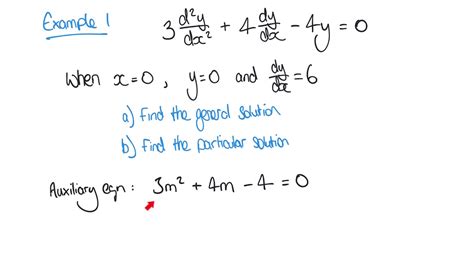 Example 1
3 d²y/dx² + 4 dy/dx - 4y = 0
When x=0, y=0 and dy/dx = 6
a) Find the general solution
b) Find the particular solution
Auxiliary eqn: 3m² + 4m - 4 = 0